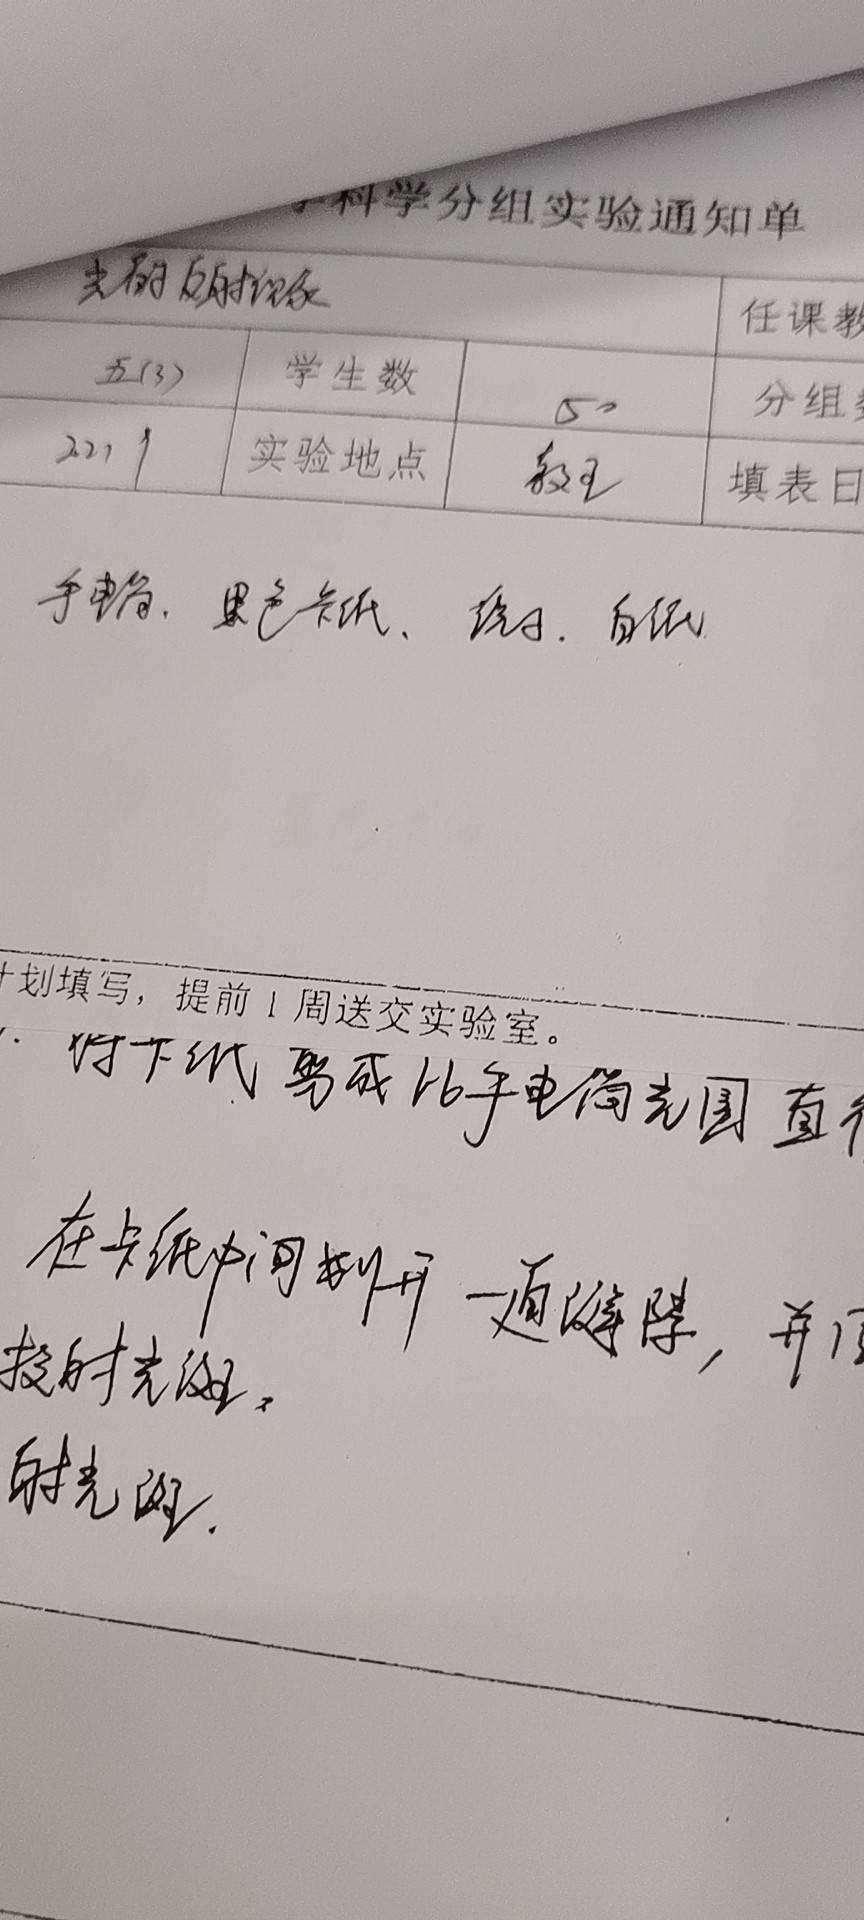 科学分组实验通知单
光的反射现象 任课教
五(3) 学生数 50 分组
22,9 实验地点 教室 填表日
手电筒、黑色卡纸、镜子、白纸
计划填写，提前1周送交实验室。
将卡纸剪成比手电筒光圈直径
在卡纸中间划开一道缝隙，并
投射光斑。
射光斑.